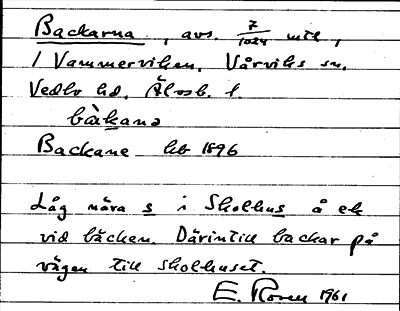 Backarna, avs. 7/1024 mtl,
/ Vammerviken. Vårviks sn.
Vedbo hd. Älvsb. l
bàkana
Backane hb 1896
Låg nära s i Skolhus å ek
vid bäcken. Därintill backar på
vägen till skolhuset.
E. Rosen 1961